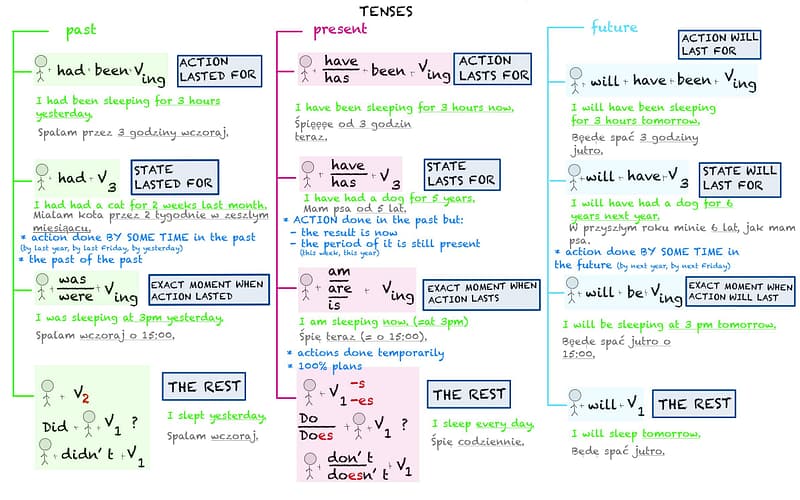 TENSES
past
had + been + Ving
ACTION
LASTED FOR
I had been sleeping for 3 hours
yesterday.
Spalam przez 3 godziny wczoraj.
had + V3
STATE
LASTED FOR
I had had a cat for 2 weeks last month.
Mialam kota przez 2 tygodnie w zeszlym
miesiacu.
* action done BY SOME TIME in the past
(by last year, by last Friday, by yesterday)
* the past of the past
was
were + Ving
EXACT MOMENT WHEN
ACTION LASTED
I was sleeping at 3pm yesterday.
Spalam wczoraj o 15:00.
+ V2
Did + + V1 ?
+ didn't + V1
THE REST
I slept yesterday.
Spalam wczoraj.
present
have
has + been + Ving
ACTION
LASTS FOR
I have been sleeping for 3 hours now.
Śpięęęę od 3 godzin
teraz.
have
has + V3
STATE
LASTS FOR
I have had a dog for 5 years.
Mam psa od 5 lat.
* ACTION done in the past but:
- the result is now
- the period of it is still present
(this week, this year)
am
are
is + Ving
EXACT MOMENT WHEN
ACTION LASTS
I am sleeping now. (=at 3pm)
Śpię teraz (= o 15:00).
* actions done temporarily
* 100% plans
+ V1 -s
-es
Do
Does + + V1 ?
don't
doesn't + V1
THE REST
I sleep every day.
Śpię codziennie.
future
ACTION WILL
LAST FOR
+ will + have + been + Ving
I will have been sleeping
for 3 hours tomorrow.
Będe spać 3 godziny
jutro.
+ will + have + V3
STATE WILL
LAST FOR
I will have had a dog for 6
years next year.
W przyszłym roku minie 6 lat, jak mam
psa.
* action done BY SOME TIME in
the future (by next year, by next Friday)
+ will + be + Ving
EXACT MOMENT WHEN
ACTION WILL LAST
I will be sleeping at 3 pm tomorrow.
Będe spać jutro o
15:00.
+ will + V1
THE REST
I will sleep tomorrow.
Bede spać jutro.